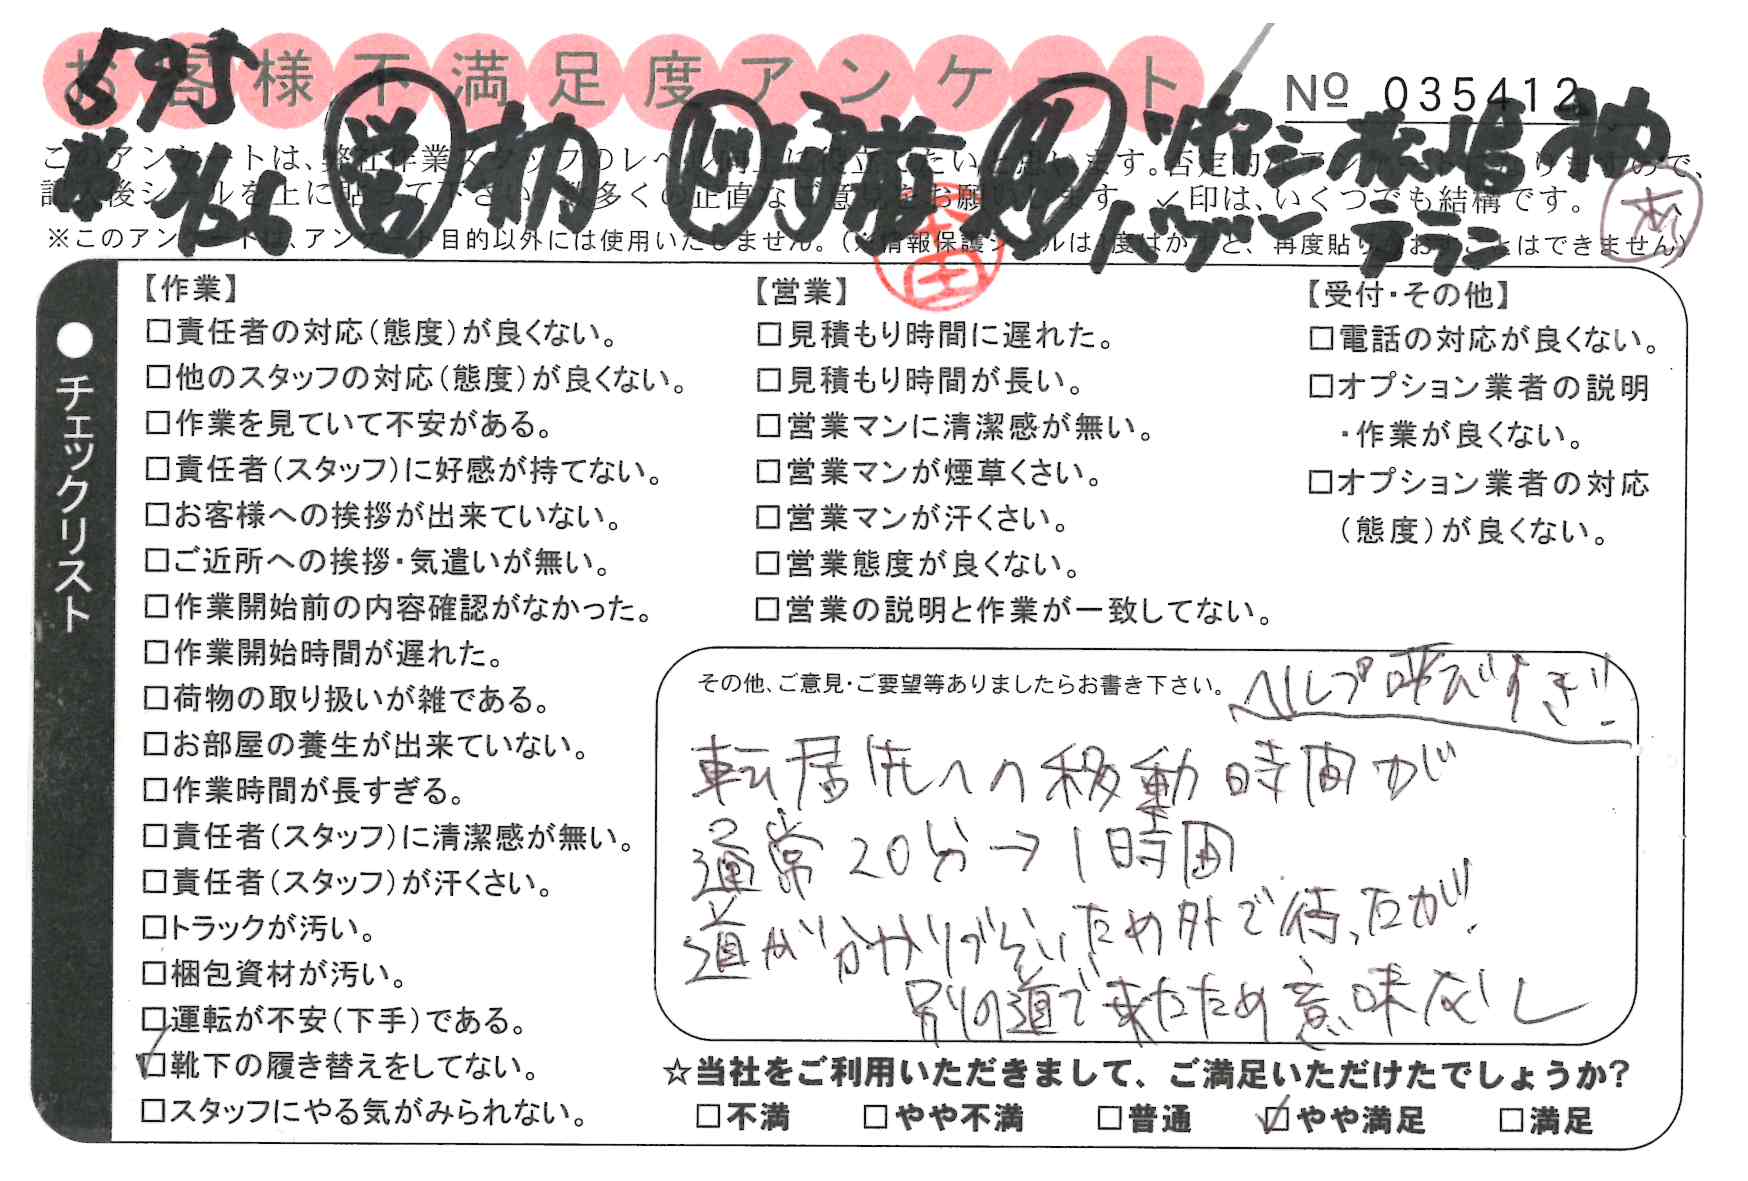 お客様不満足度アンケート
№ 035412
※このアンケートは、アンケート目的以外には使用いたしません。
印は、いくつでも結構です。
はできません）
チェックリスト
【作業】
□責任者の対応（態度）が良くない。
□他のスタッフの対応（態度）が良くない。
□作業を見ていて不安がある。
□責任者（スタッフ）に好感が持てない。
□お客様への挨拶が出来ていない。
□ご近所への挨拶・気遣いが無い。
□作業開始前の内容確認がなかった。
□作業開始時間が遅れた。
□荷物の取り扱いが雑である。
□お部屋の養生が出来ていない。
□作業時間が長すぎる。
□責任者（スタッフ）に清潔感が無い。
□責任者（スタッフ）が汗くさい。
□トラックが汚い。
□梱包資材が汚い。
□運転が不安（下手）である。
☑靴下の履き替えをしてない。
□スタッフにやる気がみられない。
【営業】
□見積もり時間に遅れた。
□見積もり時間が長い。
□営業マンに清潔感が無い。
□営業マンが煙草くさい。
□営業マンが汗くさい。
□営業態度が良くない。
□営業の説明と作業が一致してない。
【受付・その他】
□電話の対応が良くない。
□オプション業者の説明
・作業が良くない。
□オプション業者の対応
（態度）が良くない。
その他、ご意見・ご要望等ありましたらお書き下さい。
ヘルプ呼びすぎ!!
転居先への移動時間が
通常20分→1時間
道が分かりづらいため外で待ったが
別の道で来たため意味なし
☆当社をご利用いただきまして、ご満足いただけたでしょうか?
□不満 □やや不満 □普通 ☑やや満足 □満足